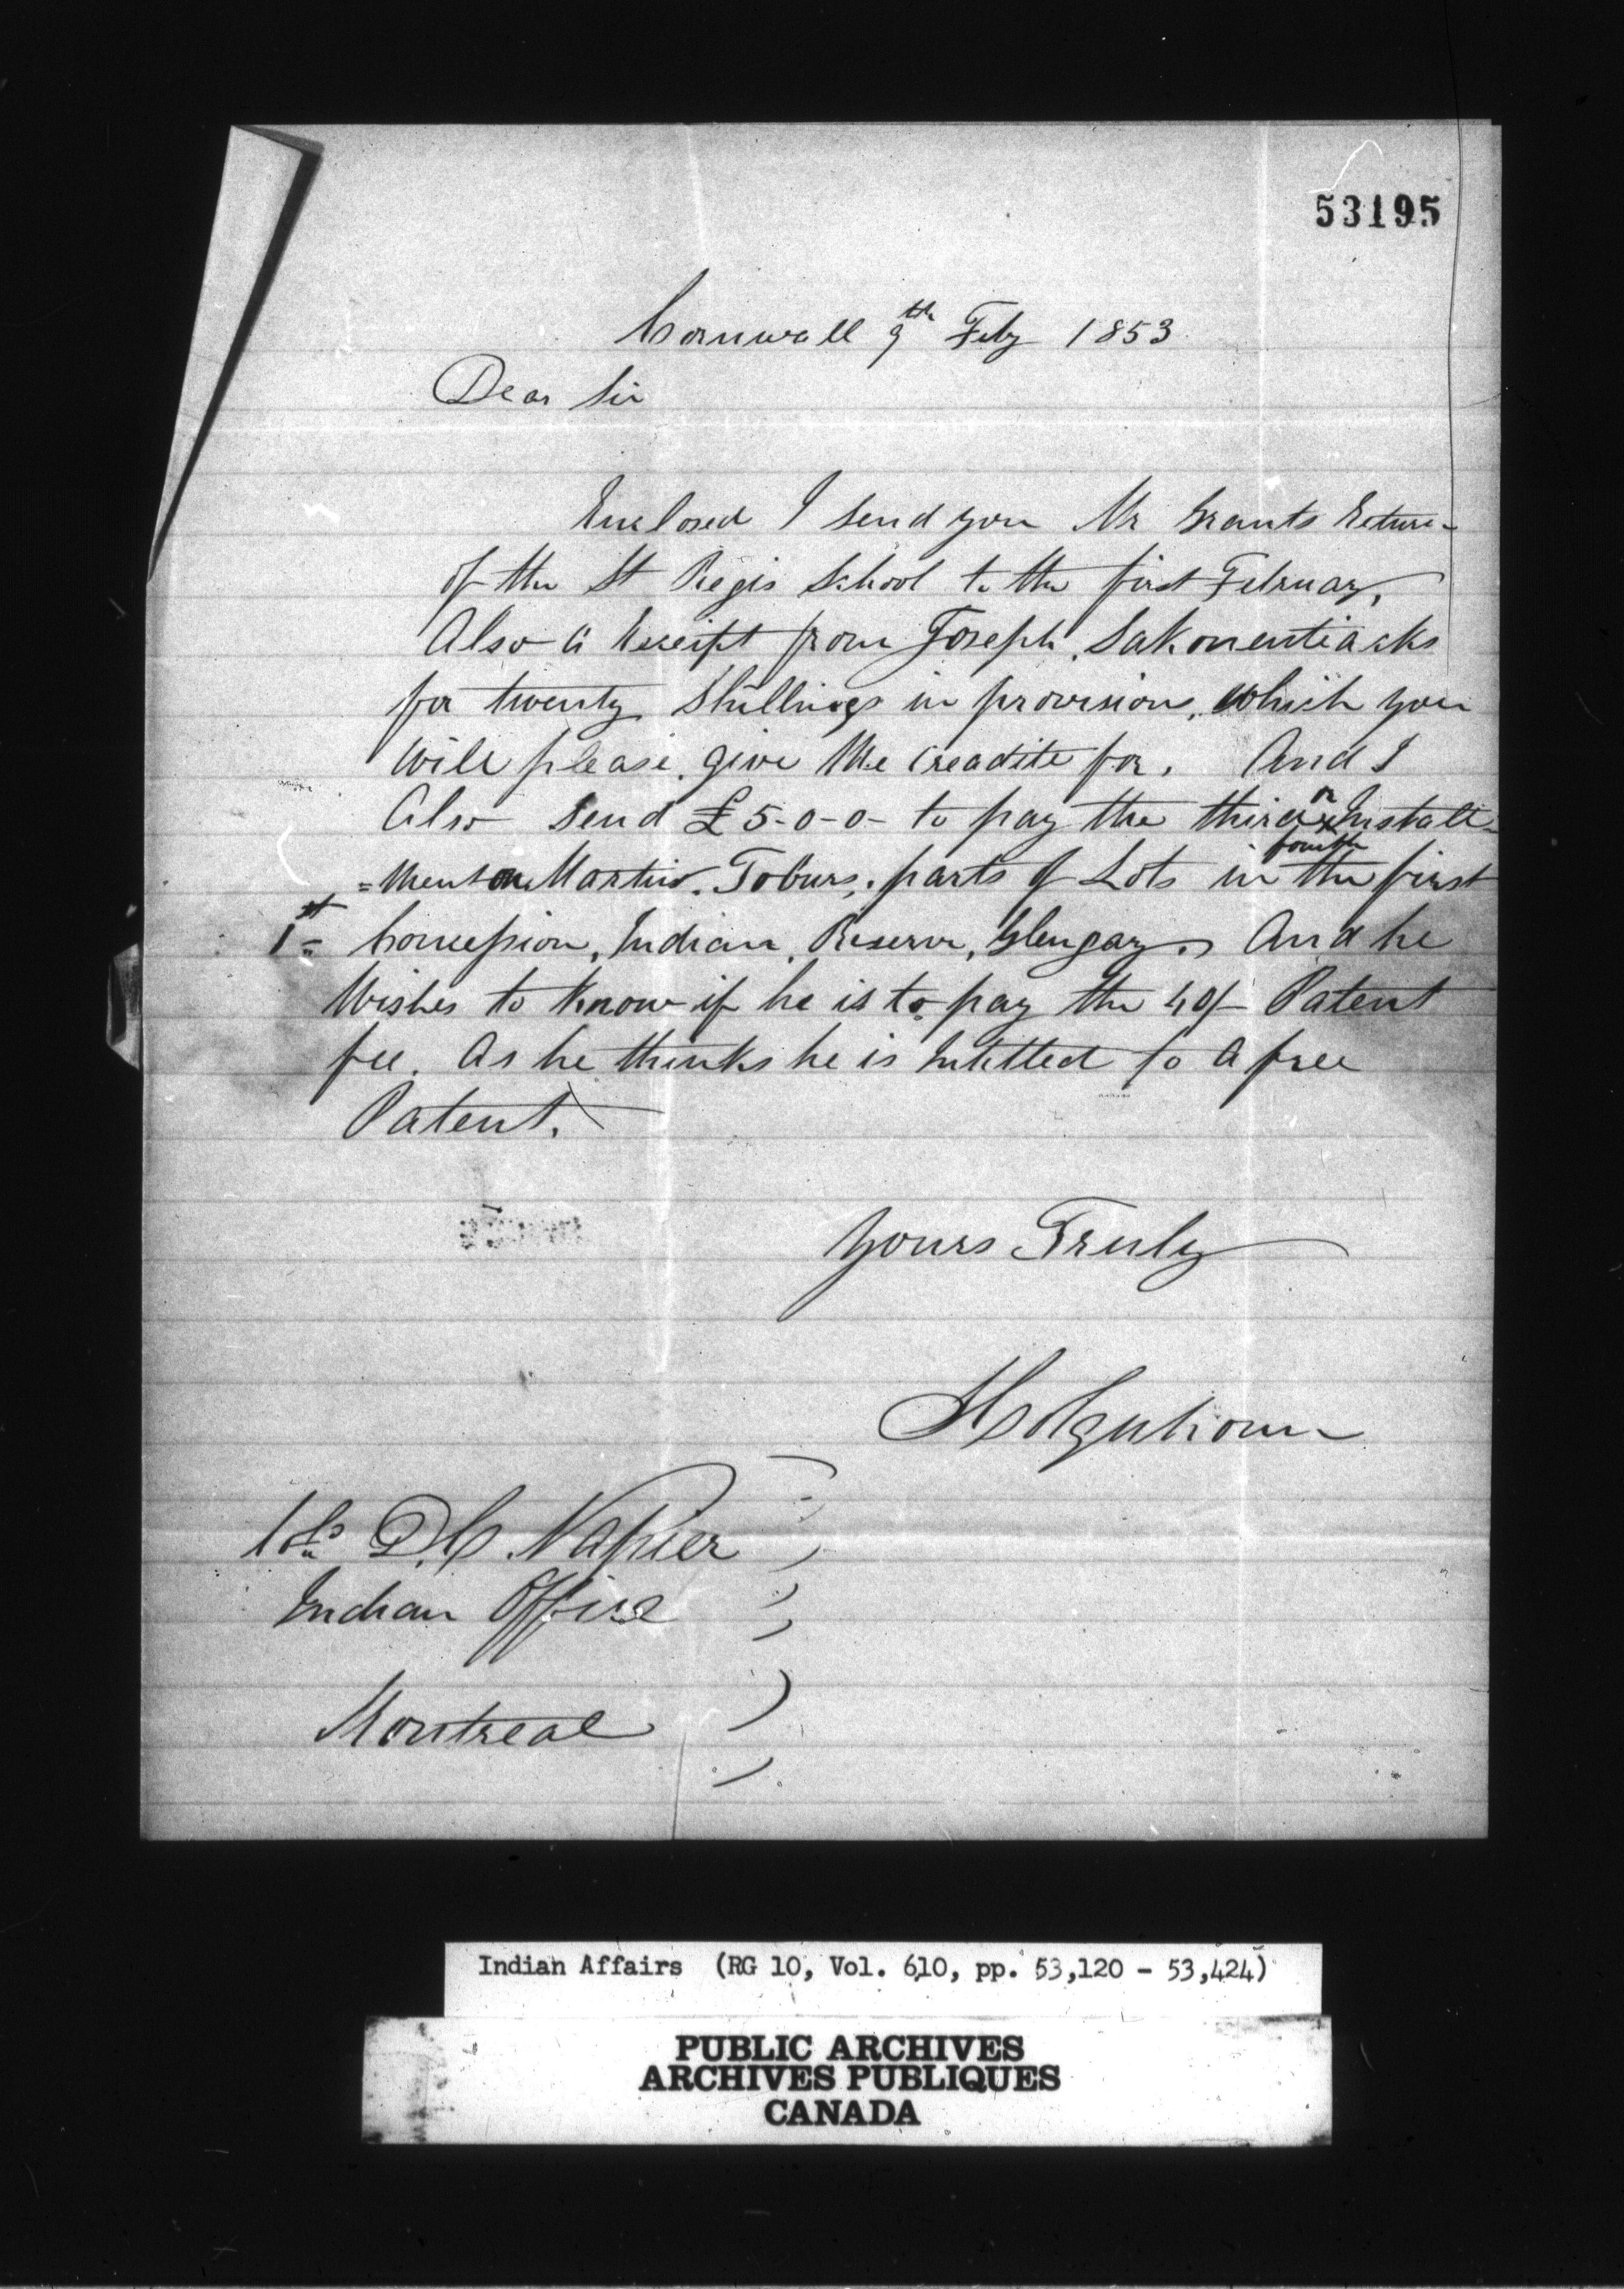 53195
Cornwall 9th Feby 1853
Dear Sir
Enclosed I send you Mr Grants Return
of the St Regis School to the first February,
Also a Receipt from Joseph Sakonentiacks
for twenty Shillings in provision, which you
Will please give Me creadite for. And I
Also Send £5-0-0- to pay the third or Install-
fourth
=ment on Martin Toburs, parts of Lots in the first
1st Concession, Indian Reserve, Glengary. And he
Wishes to Know if he is to pay the 40/- Patent
fee. As he thinks he is Intitled to a free
Patent.
Yours Truly
D.C. Napier
Indian Office
Montreal
Indian Affairs (RG 10, Vol. 610, pp. 53,120 - 53,424)
PUBLIC ARCHIVES
ARCHIVES PUBLIQUES
CANADA